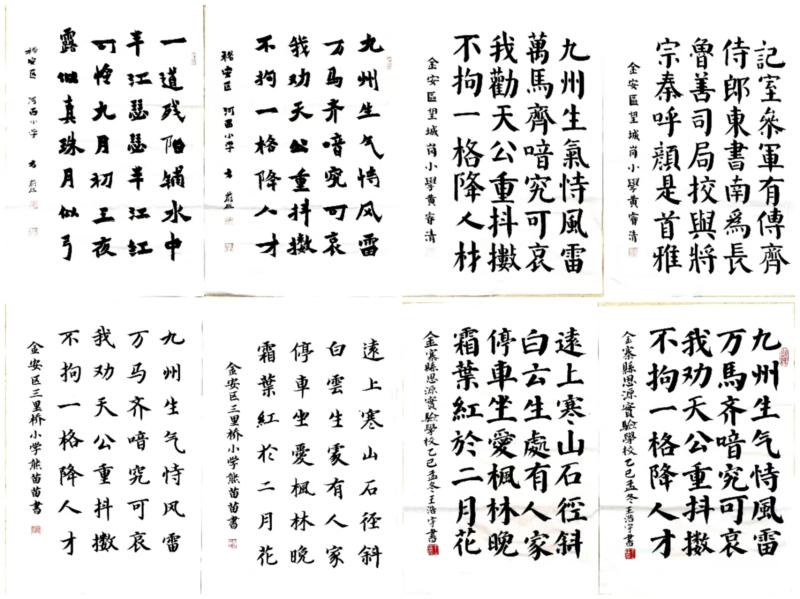 一道残阳铺水中
半江瑟瑟半江红
可怜九月初三夜
露似真珠月似弓
裕安区 河西小学
九州生气恃风雷
万马齐喑究可哀
我劝天公重抖擞
不拘一格降人才
裕安区 河西小学
九州生氣恃風雷
萬馬齊喑究可哀
我勸天公重抖擞
不拘一格降人材
金安區望城崗小學黄睿清
記室參軍有傳齊
侍郎東書南爲長
魯善司局挍與將
宗秦呼顔是首雅
金安區望城崗小學黄睿清
九州生气恃风雷
万马齐喑究可哀
我劝天公重抖擞
不拘一格降人才
金安区三里桥小学熊苗苗書
遠上寒山石徑斜
白雲生處有人家
停車坐愛楓林晚
霜葉紅於二月花
金安区三里桥小学熊苗苗書
遠上寒山石徑斜
白云生處有人家
停車坐愛楓林晚
霜葉紅於二月花
金寨縣思源實驗學校乙巳孟冬王浩宇書
九州生气恃風雷
万马齐喑究可哀
我劝天公重抖擞
不拘一格降人才
金寨縣思源實驗學校乙巳孟冬王浩宇書